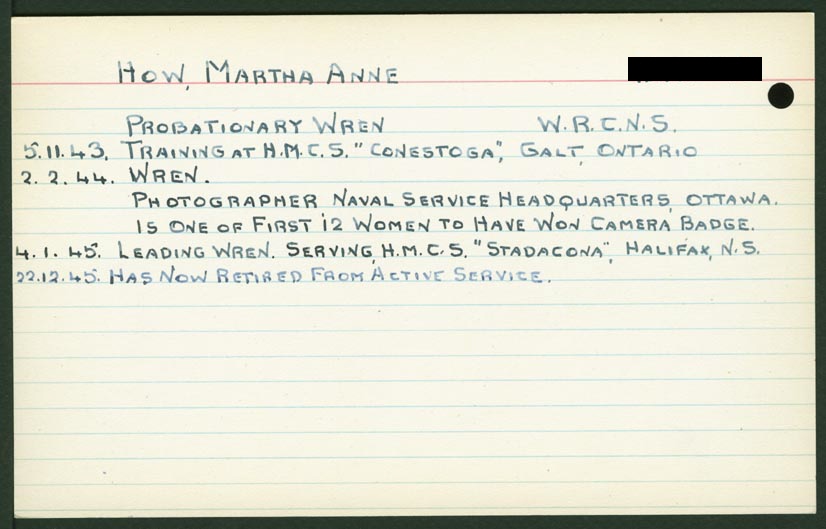 HOW, MARTHA ANNE
PROBATIONARY WREN W.R.C.N.S.
5.11.43. TRAINING AT H.M.C.S. "CONESTOGA", GALT, ONTARIO
2.2.44. WREN.
PHOTOGRAPHER NAVAL SERVICE HEADQUARTERS, OTTAWA.
IS ONE OF FIRST 12 WOMEN TO HAVE WON CAMERA BADGE.
4.1.45. LEADING WREN. SERVING, H.M.C.S. "STADACONA", HALIFAX, N.S.
22.12.45. HAS NOW RETIRED FROM ACTIVE SERVICE.